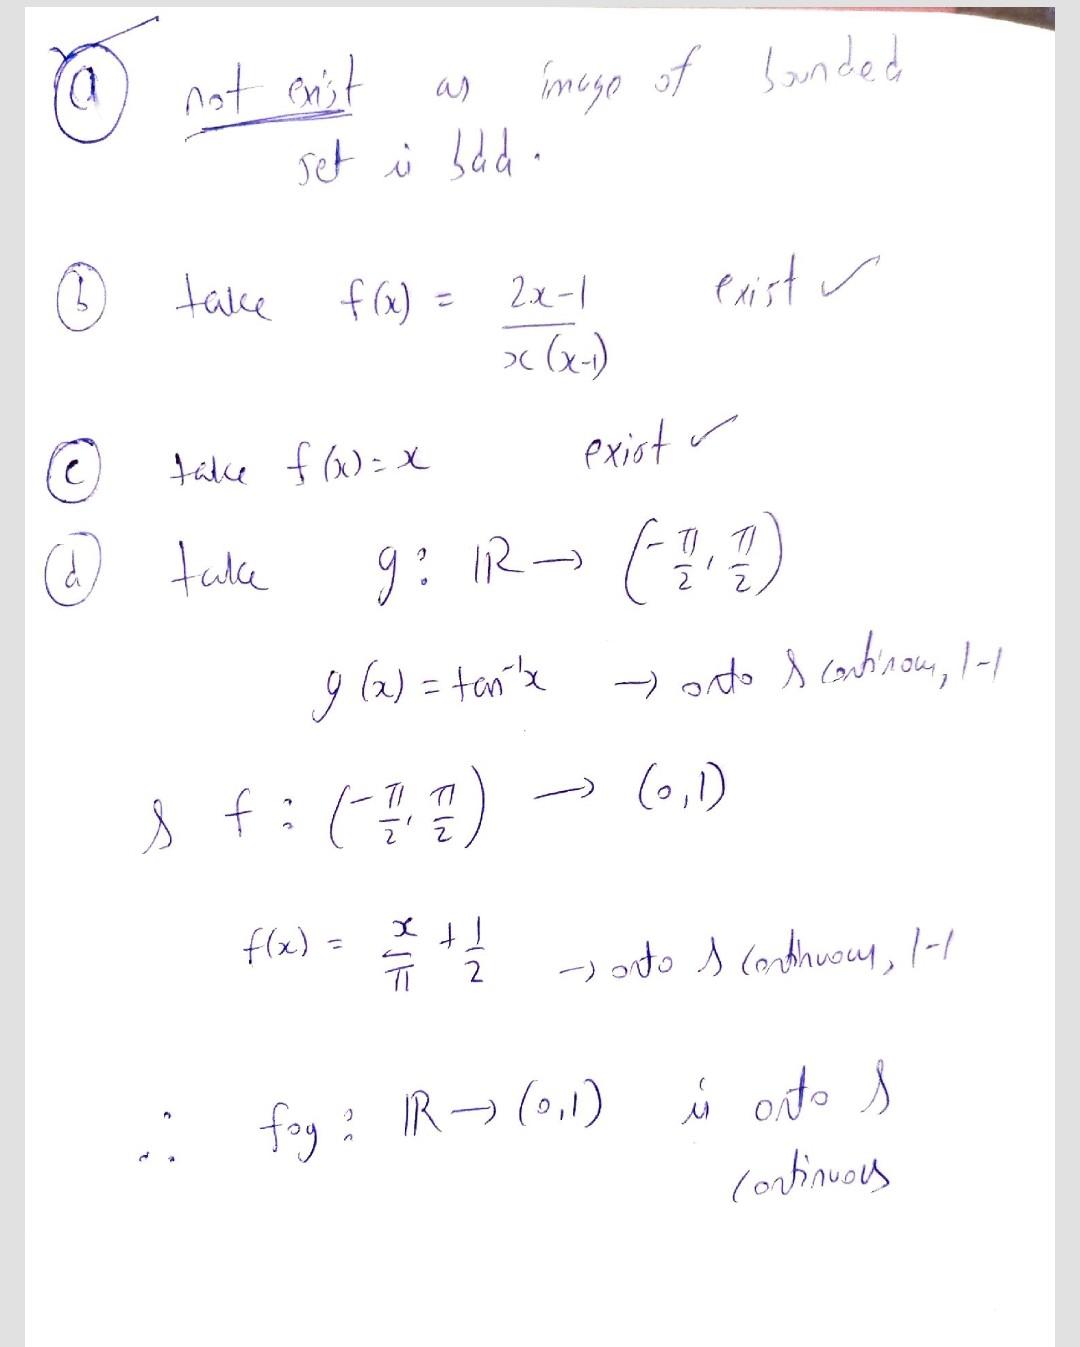 (a) not exist as image of bounded
set is bdd.
(b) take f(x) = (2x-1)/(x(x-1)) exist ✓
(c) take f(x) = x exist ✓
(d) take g : ℝ → (-π/2, π/2)
g(x) = tan⁻¹x → onto & continous, 1-1
& f : (-π/2, π/2) → (0,1)
f(x) = x/π + 1/2 → onto & continuous, 1-1
∴ fog : ℝ → (0,1) is onto &
continuous